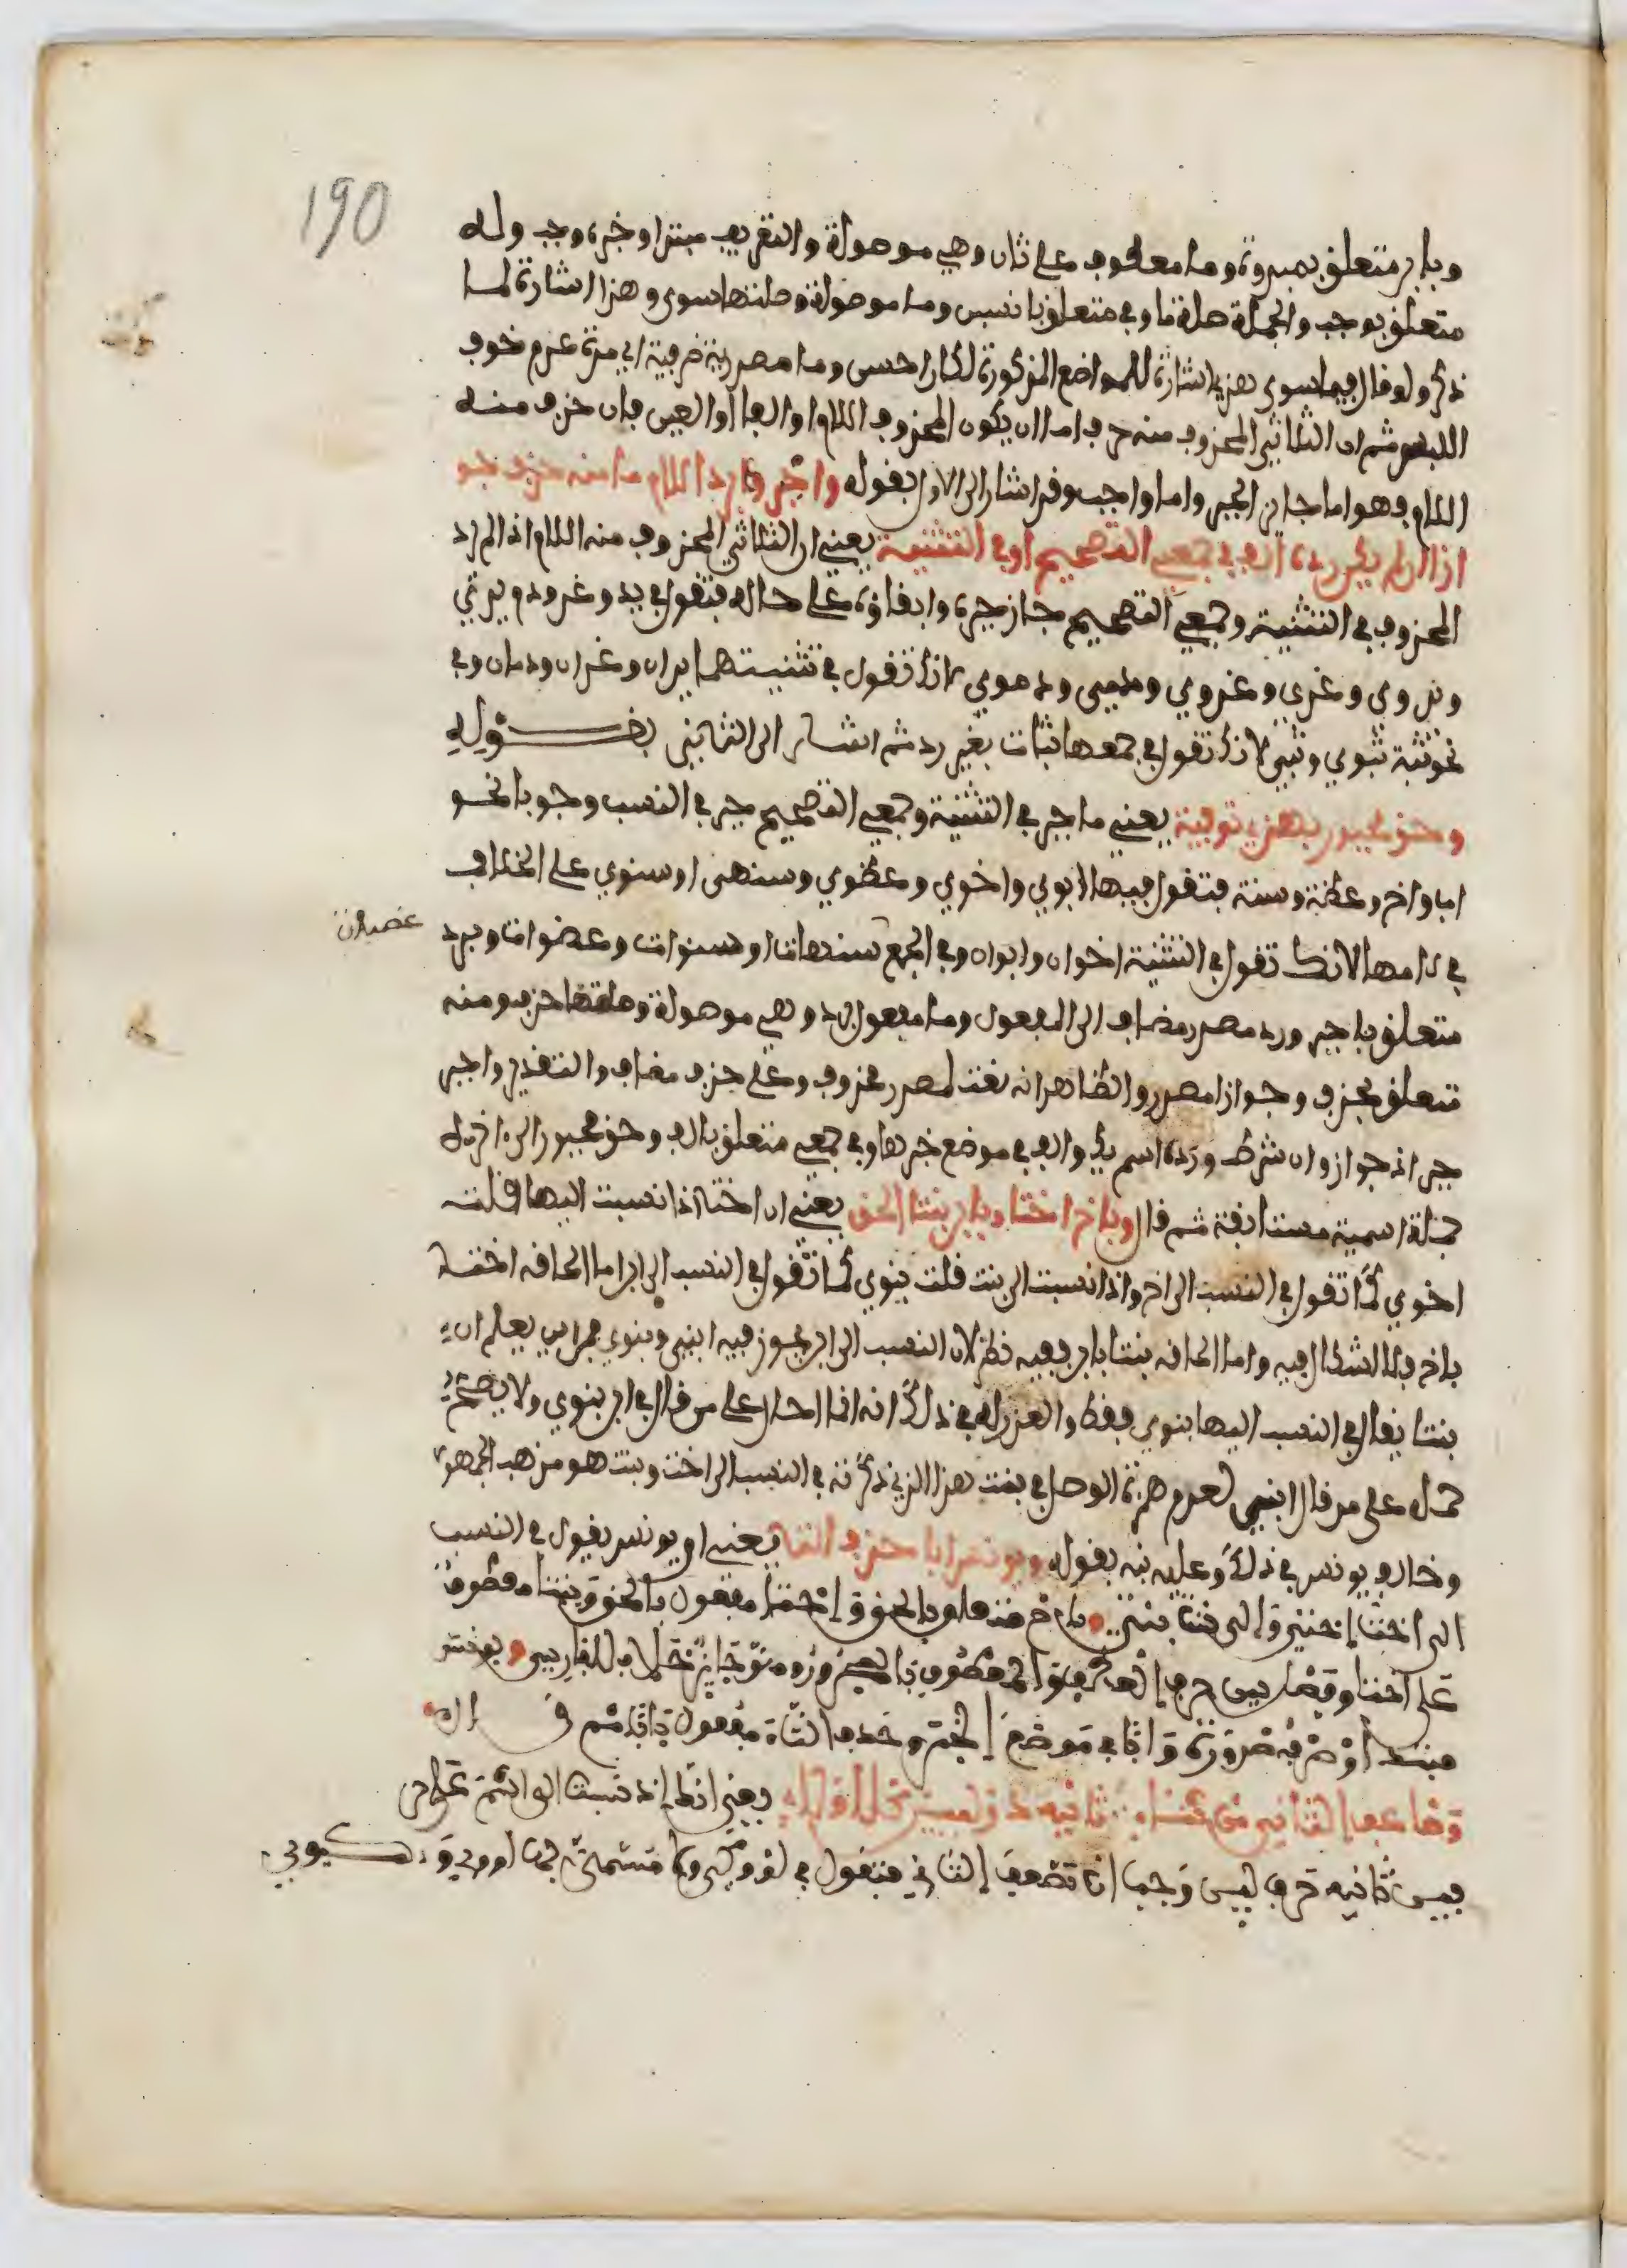 190
وبابن متعلق بمبدوة وما معطوف على ثان وهي موصولة والتعريف مبتدا وخبره وجب وله
متعلق بوجب والجملة صلة ما وفي متعلق بانسبن وما موصولة وصلتها سوى وهذا اشارة لما
ذكر ولو قال فيما سوى هذي اشارة للمواضع المذكورة لكان احسن وما مصدرية ظرفية اي مدة عدم خوف
اللبس ثم ان الثلاثي المحذوف منه حرف اما ان يكون المحذوف اللام او الفا او العين فان حذف منه
اللام فهو اما جايز الجبر واما واجب وقد اشار الى الاول بقوله واجبر برد اللام ما منه حذف جو
ازا ان لم يك رده الف في جمعي التصحيح او في التثنية يعني ان الثلاثي المحذوف منه اللام اذا لم ترد
المحذوف في التثنية وجمعي التصحيح جاز جبره وابقاؤه على حاله فتقول في يد وغد ودم يدي
ويدوي وغدي وغدوي ودمي ودموي لانك تقول في تثنيتهما يدان وغدان ودمان وفي
نحو ثبة ثبوي وثبي لانك تقول في جمعها ثبات بغير رد ثم اشار الى الثاني بقوله
وحق مجبور بهذي توفية يعني ما جبر في التثنية وجمعي التصحيح جبر في النسب وجوبا نحو
اب واخ وعضة وسنة فتقول فيها ابوي واخوي وعضوي وسنهي او سنوي على الخلاف
في لامها لانك تقول في التثنية اخوان وابوان وفي الجمع سنهات او سنوات وعضوات وبرد
متعلق باجبر ورد مصدر مضاف الى المفعول وما مفعول برد وهي موصولة وصلتها حذف ومنه
متعلق بحذف وجوازا مصدر والظاهر انه نعت لمصدر محذوف وعلى حذف مضاف والتقدير واجبر
جبرا ذا جواز وان شرط ورده اسم يك والف في موضع خبرها وفي جمعي متعلق بالف وحق مجبور الى اخره
جملة اسمية مستانفة ثم قال وباخ اختا وبابن بنتا الحق يعني ان اختا اذا نسبت اليها قلت
اخوي كما تقول في النسب الى اخ واذا نسبت الى بنت قلت بنوي كما تقول في النسب الى ابن اما الحاقه اخت
باخ فلا اشكال فيه واما الحاقه بنتا بابن ففيه نظر لان النسب الى ابن يجوز فيه ابني وبنوي فمن اين يعلم ان
بنتا يقال في النسب اليها بنوي فقط والعذر له في ذلك انه انما احال على من قال في ابن بنوي ولا يصح
حمله على من قال ابني لعدم همزة الوصل في بنت هذا الذي ذكرته في النسب الى اخت وبنت هو مذهب الجمهور
وخالف يونس في ذلك وعليه نبه بقوله ويونس ابا حذف التا يعني ان يونس يقول في النسب
الى اخت اختي والى بنت بنتي وباخ متعلق بالحق واختا مفعول بالحق وبنتا معطوف
على اختا وفصل بين حرف العطف والمعطوف بالمجرور وهو جائز خلافا للفارسي ويونس
مبتدا وصرفه ضرورة وابا في موضع الخبر وحذف التاء مفعول بابا ثم قال
وضاعف الثاني من ثناءي ثانيه ذو لين كلا ولاءي يعني انك اذا نسبت الى اسم على حر
فين ثانيه حرف لين وجب ان تضعف الثاني فتقول في لو وكي ولا مسمى بها لووي وكيوي